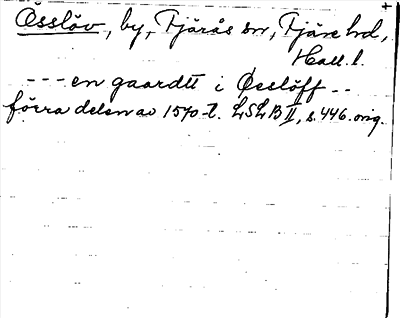 Össlöv, by, Fjärås sn, Fjäre hd,
Hall. l.
--- en gaardtt i Øsslöff --
förra delen av 1570-t. LSLB II, s. 446. orig.